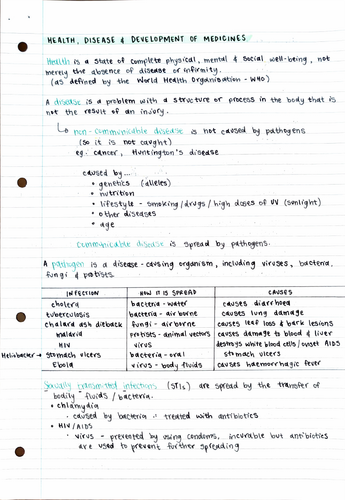 HEALTH, DISEASE & DEVELOPMENT OF MEDICINES
Health is a state of complete physical, mental & social well-being, not
merely the absence of disease or infirmity.
(as defined by the World Health Organisation - WHO)
A disease is a problem with a structure or process in the body that is
not the result of an injury.
non-communicable disease is not caused by pathogens
(so it is not caught)
eg. cancer, Huntington's disease
caused by...
• genetics (alleles)
• nutrition
• lifestyle - smoking/drugs/high doses of UV (sunlight)
• other diseases
• age
Communicable disease is spread by pathogens.
A pathogen is a disease-causing organism, including viruses, bacteria,
fungi & protists.
INFECTION HOW IT IS SPREAD CAUSES
cholera bacteria - water causes diarrhoea
tuberculosis bacteria - airborne causes lung damage
chalara ash dieback fungi - airborne causes leaf loss & bark lesions
malaria protists - animal vectors causes damage to blood & liver
HIV virus destroys white blood cells/onset AIDS
Heliobacter → stomach ulcers bacteria - oral stomach ulcers
Ebola virus - body fluids causes haemorrhagic fever
Sexually transmitted infections (STIs) are spread by the transfer of
bodily fluids / bacteria.
• chlamydia
- caused by bacteria : treated with antibiotics
• HIV/AIDS
- virus - prevented by using condoms, incurable but antibiotics
are used to prevent further spreading